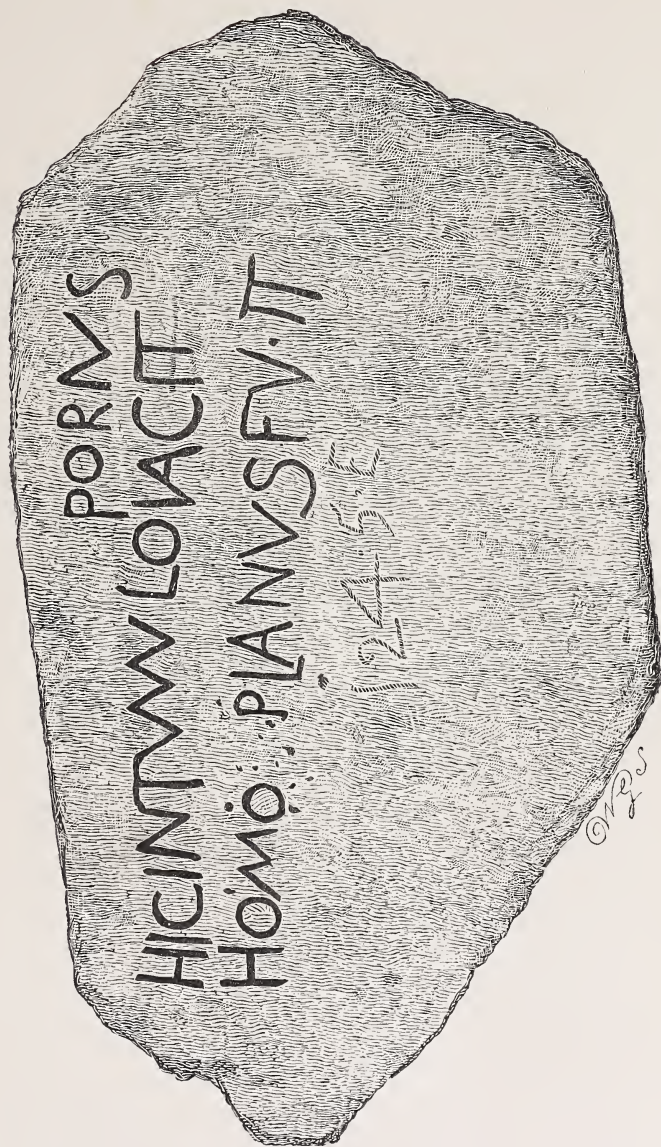 PORIVS
HICINTVMVLOIACIT
HOMO PLANVSFV·IT
124·5·E